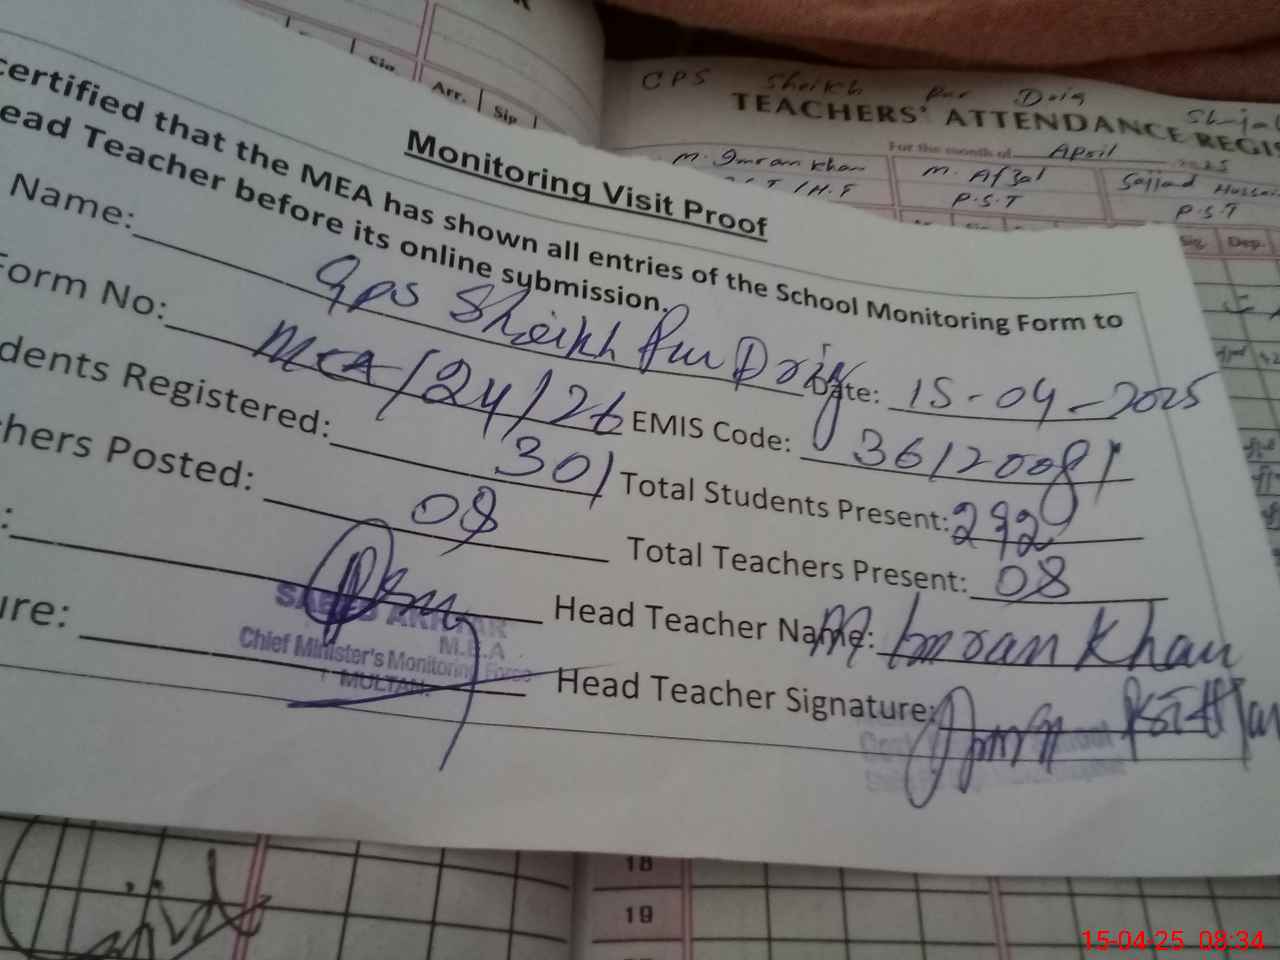 Sig.
Arr.
Sig
CPS Sheikh Pur Doig
TEACHERS' ATTENDANCE REGIS
For the month of April 2025
M. Imran Khan
M. Afzal
Sajjad Hussai
P.S.T
P.S.T
Sig.
Dep.
Monitoring Visit Proof
certified that the MEA has shown all entries of the School Monitoring Form to
ead Teacher before its online submission.
Name: Gps Sheikh Pur Drig Date: 15-04-2025
Form No: MEA/24/26 EMIS Code: 36120081
dents Registered: 301 Total Students Present: 292
hers Posted: 08 Total Teachers Present: 08
: Head Teacher Name: M. Imran Khan
ure: Head Teacher Signature:
SAEED AKHTAR
M.E.A
Chief Minister's Monitoring Force
MULTAN.
18
19
15-04-25 08:34